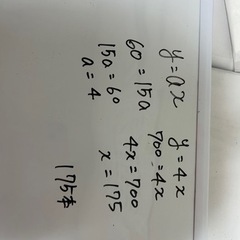 y=ax
60=15a
15a=60
a=4
y=4x
700=4x
4x=700
x=175
175本